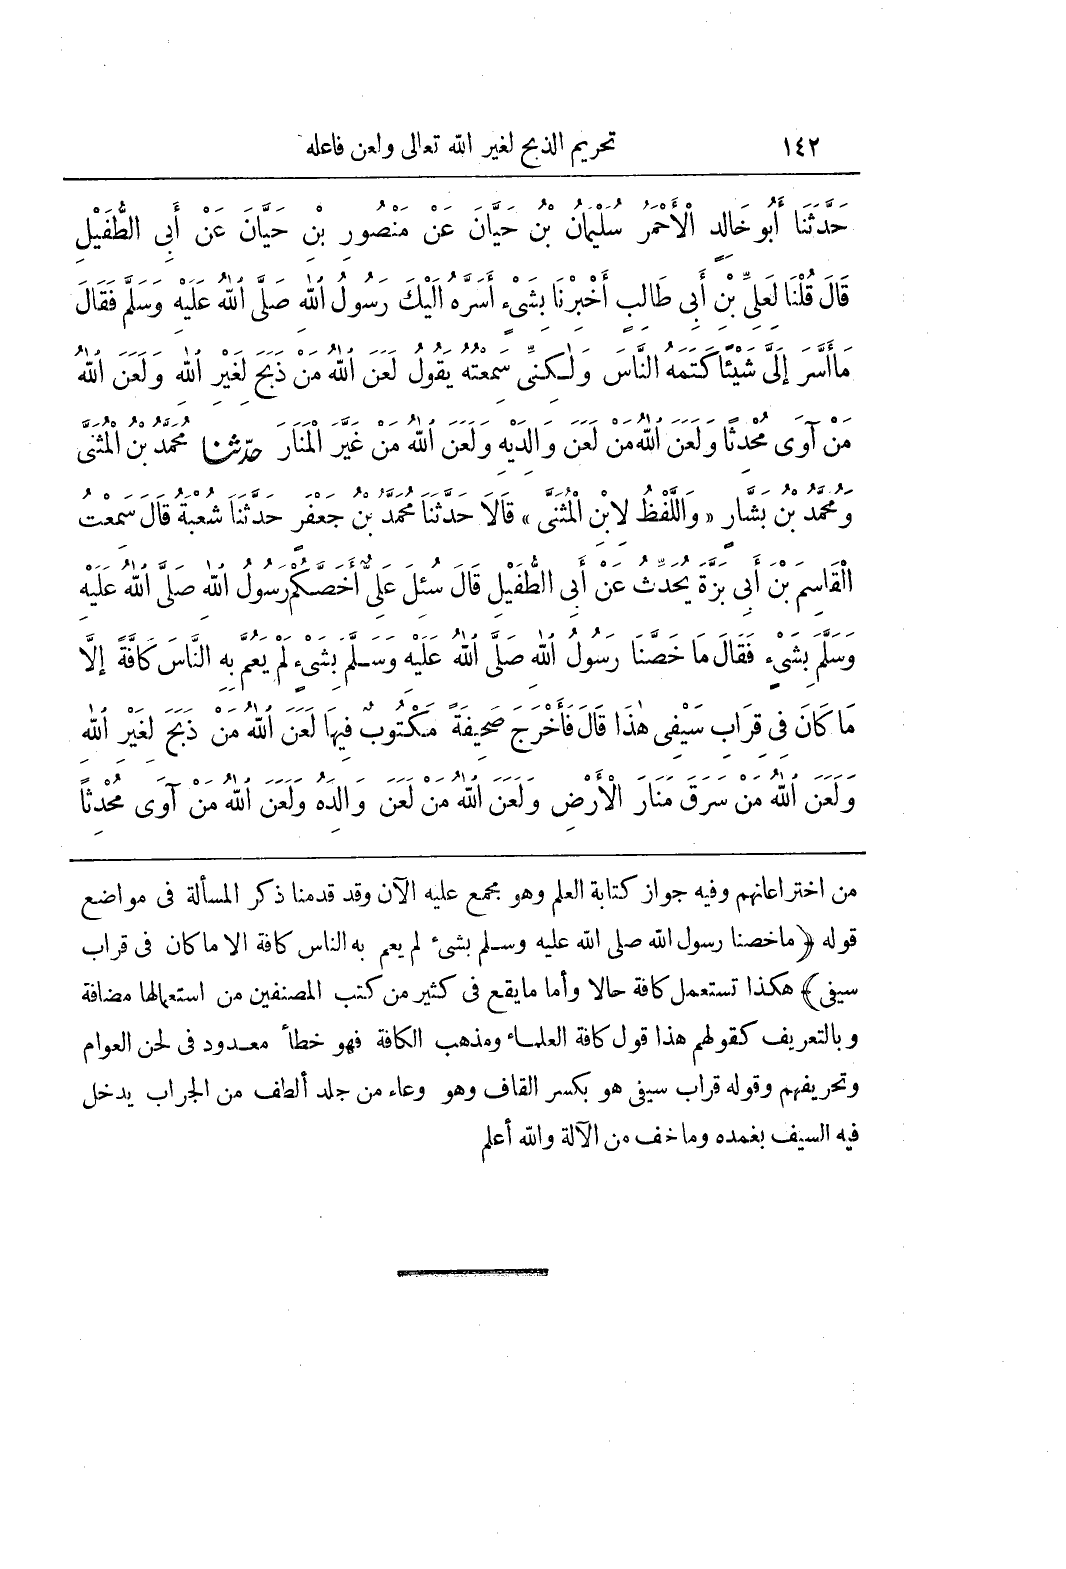 ١٤٢ تحريم الذبح لغير الله تعالى ولعن فاعله
حَدَّثَنَا أَبُو خَالِدٍ الْأَحْمَرُ سُلَيْمَانُ بْنُ حَيَّانَ عَنْ مَنْصُورِ بْنِ حَيَّانَ عَنْ أَبِى الطُّفَيْلِ
قَالَ قُلْنَا لِعَلِىِّ بْنِ أَبِى طَالِبٍ أَخْبِرْنَا بِشَىْءٍ أَسَرَّهُ الَيْكَ رَسُولُ اللهِ صَلَّى اللهُ عَلَيْهِ وَسَلَّمَ فَقَالَ
مَا أَسَرَّ إِلَىَّ شَيْئًا كَتَمَهُ النَّاسَ وَلٰكِنِّى سَمِعْتُهُ يَقُولُ لَعَنَ اللهُ مَنْ ذَبَحَ لِغَيْرِ اللهِ وَلَعَنَ اللهُ
مَنْ آوَى مُحْدِثًا وَلَعَنَ اللهُ مَنْ لَعَنَ وَالِدَيْهِ وَلَعَنَ اللهُ مَنْ غَيَّرَ الْمَنَارَ حدّثنا مُحَمَّدُ بْنُ الْمُثَنَّى
وَمُحَمَّدُ بْنُ بَشَّارٍ « وَاللَّفْظُ لِابْنِ الْمُثَنَّى » قَالَا حَدَّثَنَا مُحَمَّدُ بْنُ جَعْفَرٍ حَدَّثَنَا شُعْبَةُ قَالَ سَمِعْتُ
الْقَاسِمَ بْنَ أَبِى بَزَّةَ يُحَدِّثُ عَنْ أَبِى الطُّفَيْلِ قَالَ سُئِلَ عَلِىٌّ أَخَصَّكُمْ رَسُولُ اللهِ صَلَّى اللهُ عَلَيْهِ
وَسَلَّمَ بِشَىْءٍ فَقَالَ مَا خَصَّنَا رَسُولُ اللهِ صَلَّى اللهُ عَلَيْهِ وَسَلَّمَ بِشَىْءٍ لَمْ يَعُمَّ بِهِ النَّاسَ كَافَّةً إِلَّا
مَا كَانَ فِى قِرَابِ سَيْفِى هٰذَا قَالَ فَأَخْرَجَ صَحِيفَةً مَكْتُوبٌ فِيهَا لَعَنَ اللهُ مَنْ ذَبَحَ لِغَيْرِ اللهِ
وَلَعَنَ اللهُ مَنْ سَرَقَ مَنَارَ الْأَرْضِ وَلَعَنَ اللهُ مَنْ لَعَنَ وَالِدَهُ وَلَعَنَ اللهُ مَنْ آوَى مُحْدِثًا
من اختراعاتهم وفيه جواز كتابة العلم وهو مجمع عليه الآن وقد قدمنا ذكر المسألة فى مواضع
قوله ﴿ماخصنا رسول الله صلى الله عليه وسلم بشىء لم يعم به الناس كافة الا ما كان فى قراب
سيفى﴾ هكذا تستعمل كافة حالا وأما مايقع فى كثير من كتب المصنفين من استعمالها مضافة
وبالتعريف كقولهم هذا قول كافة العلماء ومذهب الكافة فهو خطأ معدود فى لحن العوام
وتحريفهم وقوله قراب سيفى هو بكسر القاف وهو وعاء من جلد ألطف من الجراب يدخل
فيه السيف بغمده وما خف من الآلة والله أعلم